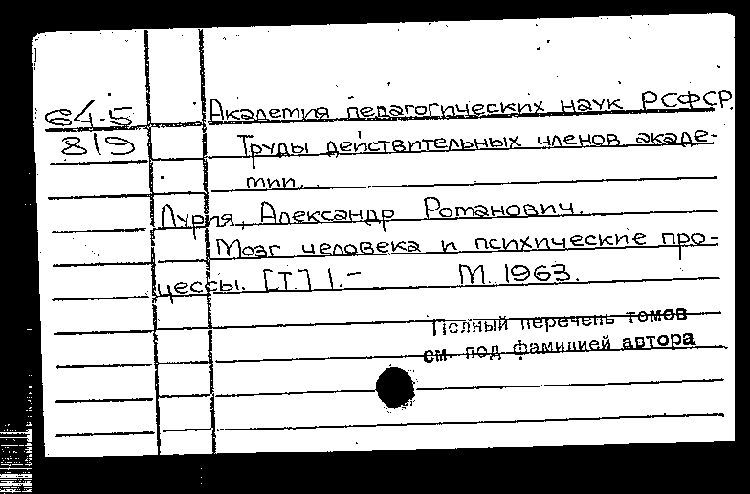 64-5
819
Академия педагогических наук РСФСР.
Труды действительных членов акаде-
мии.
Лурия, Александр Романович.
Мозг человека и психические про-
цессы. [Т.] 1.- М. 1963.
Полный перечень томов
см. под фамилией автора